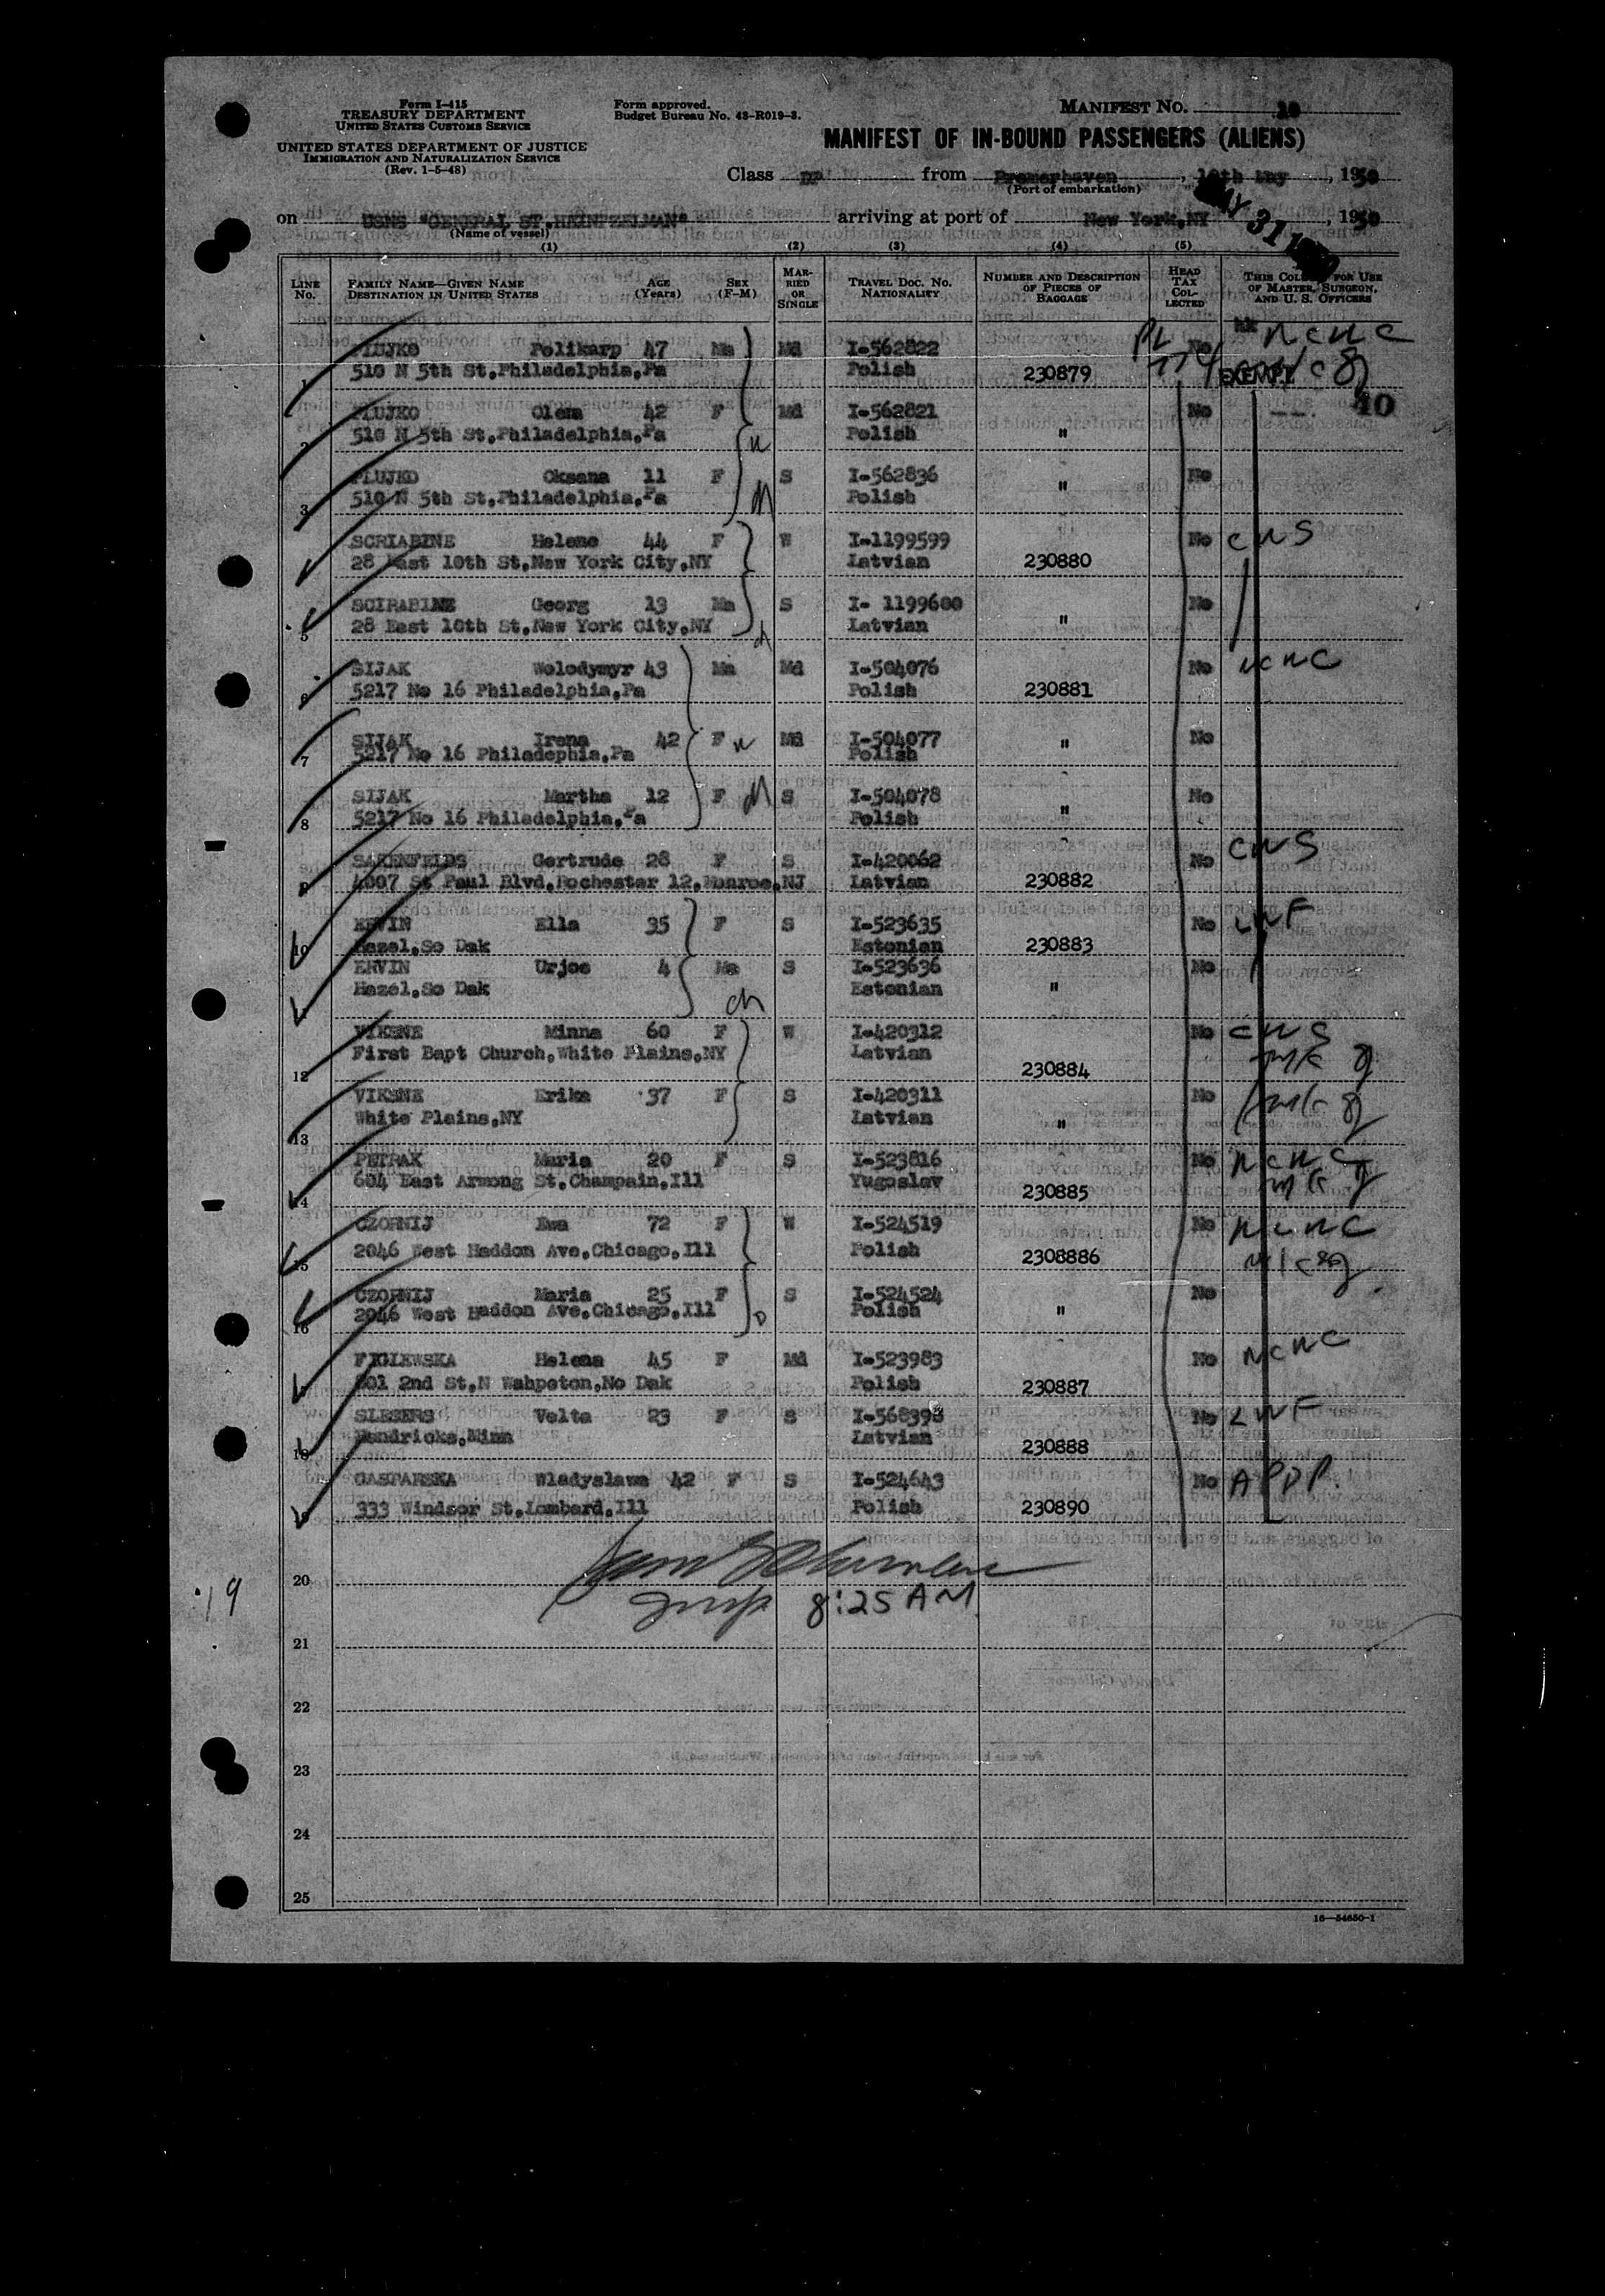 Form I-415
TREASURY DEPARTMENT
UNITED STATES CUSTOMS SERVICE
UNITED STATES DEPARTMENT OF JUSTICE
IMMIGRATION AND NATURALIZATION SERVICE
(Rev. 1-5-48)
Form approved.
Budget Bureau No. 43-R019-3.
MANIFEST NO. 10
MANIFEST OF IN-BOUND PASSENGERS (ALIENS)
Class from Bremerhaven, 19
(Port of embarkation)
on USNS "GENERAL ST.HEINTZELMAN" arriving at port of New York,NY, 1950
(Name of vessel)
(1) (2) (3) (4) (5)
LINE No. FAMILY NAME—GIVEN NAME DESTINATION IN UNITED STATES AGE (Years) SEX (F-M) MARRIED OR SINGLE TRAVEL DOC. NO. NATIONALITY NUMBER AND DESCRIPTION OF PIECES OF BAGGAGE HEAD TAX COLLECTED THIS COLUMN FOR USE OF MASTER, SURGEON, AND U. S. OFFICERS
1 PLUJKO Polikarp 47 Ma Md I-562822 No NCNC
510 N 5th St,Philadelphia,Pa Polish 230879 EXEMPT
2 PLUJKO Olena 42 F Md I-562821 No 10
510 N 5th St,Philadelphia,Pa Polish "
3 PLUJKO Oksana 11 F S I-562836 No
510 N 5th St,Philadelphia,Pa Polish "
SCRIABINE Helene 44 F W I-1199599 No CWS
28 East 10th St,New York City,NY Latvian 230880
5 SCIRABINE Georg 13 Ma S I- 1199600 No
28 East 10th St,New York City,NY Latvian "
6 SIJAK Wolodymyr 43 Ma Md I-504076 No NCNC
5217 No 16 Philadelphia,Pa Polish 230881
7 SIJAK Irena 42 F Md I-504077 No
5217 No 16 Philadephia,Pa Polish "
8 SIJAK Martha 12 F S I-504078 No
5217 No 16 Philadelphia,Pa Polish "
9 SAKENFELDS Gertrude 28 F S I-420062 No CWS
St Paul Blvd,Rochester 12,Monroe,NJ Latvian 230882
10 ERVIN Ella 35 F S I-523635 No LWF
Hazel,So Dak Estonian 230883
ERVIN Urjoe 4 Ma S I-523636 No
Hazel,So Dak Estonian "
12 VIKSNE Minna 60 F W I-420312 No CWS
First Bapt Church,White Plains,NY Latvian 230884
13 VIKSNE Erika 37 F S I-420311 No
White Plains,NY Latvian "
14 PETRAK Maria 20 F S I-523816 No NCNC
604 East Armong St,Champain,Ill Yugoslav 230885
15 CZORNIJ Ewa 72 F W I-524519 No NCNC
2046 West Haddon Ave,Chicago,Ill Polish 2308886
16 CZORNIJ Maria 25 F S I-524524 No
2046 West Haddon Ave,Chicago,Ill Polish "
FIGLEWSKA Helena 45 F Md I-523983 No NCNC
801 2nd St,N Wahpeton,No Dak Polish 230887
18 SLESERS Velta 23 F S I-568398 No LWF
Hendricks,Minn Latvian 230888
19 GASPARSKA Wladyslawa 42 F S I-524643 No APDP.
333 Windsor St,Lombard,Ill Polish 230890
20
19
8:25 AM
21
22
23
24
25
16—54650-1